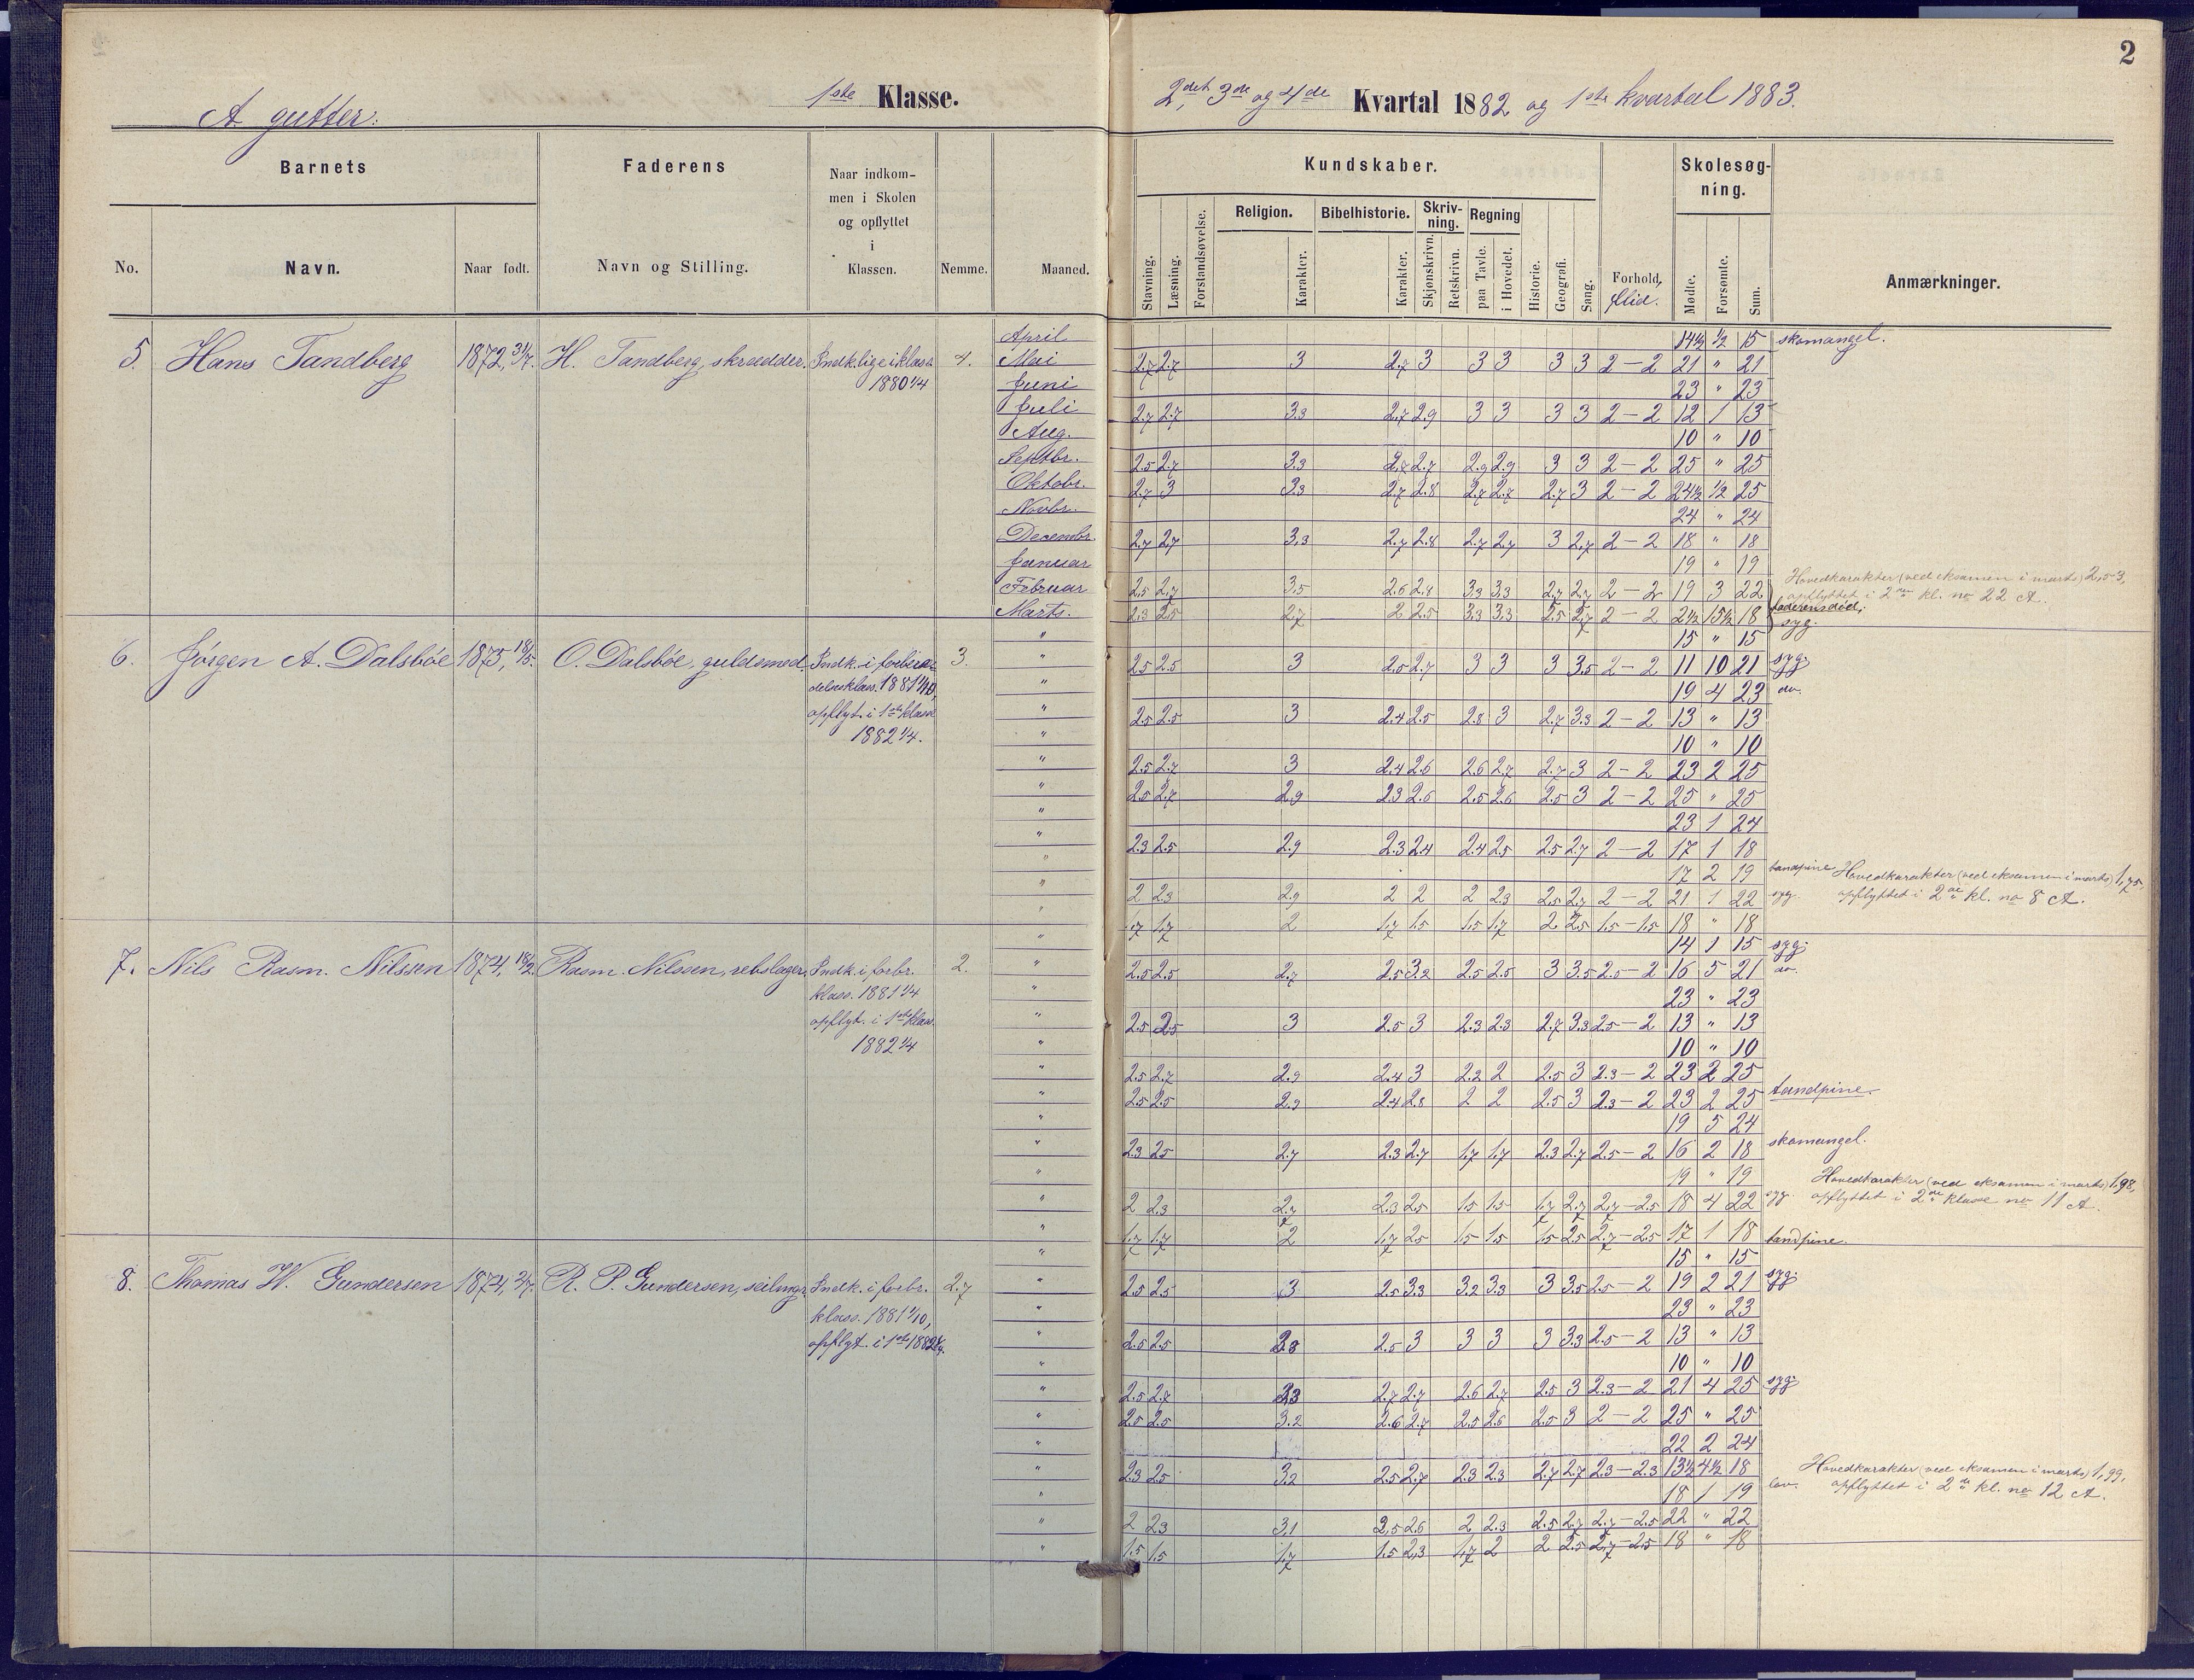 2
A. gutter.
1ste Klasse.
2det, 3de og 4de Kvartal 1882 og 1ste kvartal 1883.
Barnets
Faderens
Naar indkom-
men i Skolen
og opflyttet
i
Klassen.
No.
Navn.
Naar født.
Navn og Stilling.
Nemme.
Maaned.
Kundskaber.
Stavning.
Læsning.
Forstandsøvelse.
Religion.
Karakter.
Bibelhistorie.
Karakter.
Skriv-
ning.
Skjønskrivn.
Retskrivn.
Regning
paa Tavle.
i Hovedet.
Historie.
Geografi.
Sang.
Forhold,
flid.
Skolesøg-
ning.
Mødte.
Forsømte.
Sum.
Anmærkninger.
5. Hans Tandberg 1872, 31/7. H. Tandberg, skrædder. Indk. lige i klass. 4.
1880 1/4
April 14½ ½ 15 skomangel.
Mai 2.7 2.7 3 2.7 3 3 3 3 3 2–2 21 " 21
Juni 23 " 23
Juli 2.7 2.7 3.3 2.7 2.9 3 3 3 3 2–2 12 1 13
Aug. 10 " 10
Septbr. 2.5 2.7 3.3 2.7 2.7 2.9 2.9 3 3 2–2 25 " 25
Oktobr. 2.7 3 3.3 2.7 2.8 2.7 2.7 2.7 3 2–2 24½ ½ 25
Novbr. 24 " 24
Decembr. 2.7 2.7 3.3 2.7 2.8 2.7 2.7 3 2.7 2–2 18 " 18
Januar 19 " 19
Februar 2.5 2.7 3.5 2.6 2.8 3.3 3.3 2.7 2.7 2–2 19 3 22
Hovedkarakter (ved eksamen i marts) 2,53,
opflyttet i 2de kl. no 22 A.
Marts. 2.3 2.5 2.7 2 2.5 3.3 3.3 2.5 2.7 2–2 2½ 15½ 18 faderens død;
syg.
" 15 " 15
6. Jørgen A. Dalsbøe 1873, 18/5. O. Dalsbøe, guldsmed. Indk. i forbere- 3.
delseskláss. 1881 1/10,
opflyt. i 1ste klasse
1882 1/4.
" 2.5 2.5 3 2.5 2.7 3 3 3 3.5 2–2 11 10 21 syg.
" 19 4 23 do.
" 2.5 2.5 3 2.4 2.5 2.8 3 2.7 3.3 2–2 13 " 13
" 10 " 10
" 2.5 2.7 3 2.4 2.6 2.6 2.7 2.7 3 2–2 23 2 25
" 2.5 2.7 2.9 2.3 2.6 2.5 2.6 2.5 3 2–2 25 " 25
" 23 1 24
" 2.3 2.5 2.9 2.3 2.4 2.4 2.5 2.5 2.7 2–2 17 1 18
" 17 2 19 tandpine Hovedkarakter (ved eksamen i marts) 1,75,
" 2 2.3 2.9 2 2 2 2.3 2.5 2.7 2–2 21 1 22 syg. opflyttet i 2de kl. no 8 A.
" 1.7 1.7 2 1.7 1.5 1.5 1.7 2 2.5 1.5–1.5 18 " 18
" 14 1 15 syg.
7. Nils Rasm. Nilssen 1874, 18/2. Rasm. Nilssen, rebslager. Indk. i forbr. 2.
klass. 1881 1/4
opflyt. i 1ste klass.
1882 1/4
" 2.5 2.5 2.7 2.5 3.2 2.5 2.5 3 3.5 2.5–2 16 5 21 do.
" 23 " 23
" 2.5 2.5 3 2.5 3 2.3 2.3 2.7 3.3 2.5–2 13 " 13
" 10 " 10
" 2.5 2.7 2.9 2.4 3 2.2 2 2.5 3 2.3–2 23 2 25
" 2.5 2.5 2.9 2.4 2.8 2 2 2.5 3 2.3–2 23 2 25 tandpine.
" 19 5 24
" 2.3 2.5 2.7 2.3 2.7 1.7 1.7 2.3 2.7 2.5–2 16 2 18 skomangel.
" 19 " 19 Hovedkarakter (ved eksamen i marts) 1,98,
" 2 2.3 2.7 2.3 2.5 1.5 1.5 1.7 2.7 2.7–2.5 18 4 22 syg. opflyttet i 2de klasse no 11 A.
" 1.7 1.7 2 1.7 2.5 1.5 1.5 1.5 2.5 2.7–2.5 17 1 18 tandpine.
" 15 " 15
8. Thomas W. Gundersen 1874, 2/7. R. P. Gundersen, seilmgr. Indk. i forbr. 2.7
klass. 1881 1/10,
opflyt. i 1ste 1882 1/4.
" 2.5 2.5 3 2.5 3.3 3.2 3.3 3 3.5 2.5–2 19 2 21 syg.
" 23 " 23
" 2.5 2.5 3.3 2.5 3 3 3 3 3.3 2.5–2 13 " 13
" 10 " 10
" 2.5 2.7 3.3 2.7 2.7 2.6 2.7 2.5 3 2.3–2 21 4 25 syg.
" 2.5 2.5 3.2 2.6 2.7 2.5 2.6 2.5 3 2–2 25 " 25
" 22 2 24
" 2.3 2.5 3.2 2.5 2.7 2.3 2.3 2.7 2.7 2.3–2.3 13½ 4½ 18 Hovedkarakter (ved eksamen i marts) 1,99,
" 18 1 19 lov. opflyttet i 2de kl. no 12 A.
" 2 2.3 3,1 2,5 2.6 2 2.3 2.5 2.7 2.7–2.5 22 " 22
" 1.5 1.5 1.7 1.5 2,3 1.7 2 2 2.5 2.7–2.5 18 " 18